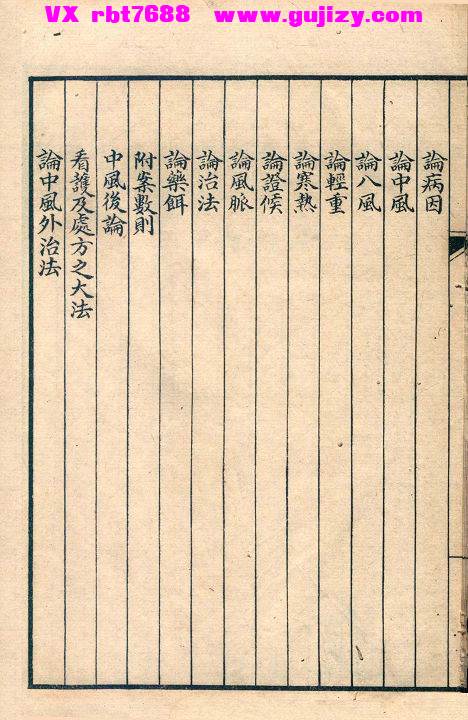 VX rbt7688 www.gujizy.com
論病因
論中風
論八風
論輕重
論寒熱
論證候
論風脈
論治法
論藥餌
附案數則
中風後論
看護及處方之大法
論中風外治法